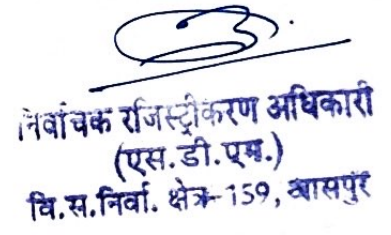 निर्वाचक रजिस्ट्रीकरण अधिकारी
(एस.डी.एम.)
वि.स.निर्वा. क्षेत्र-159,